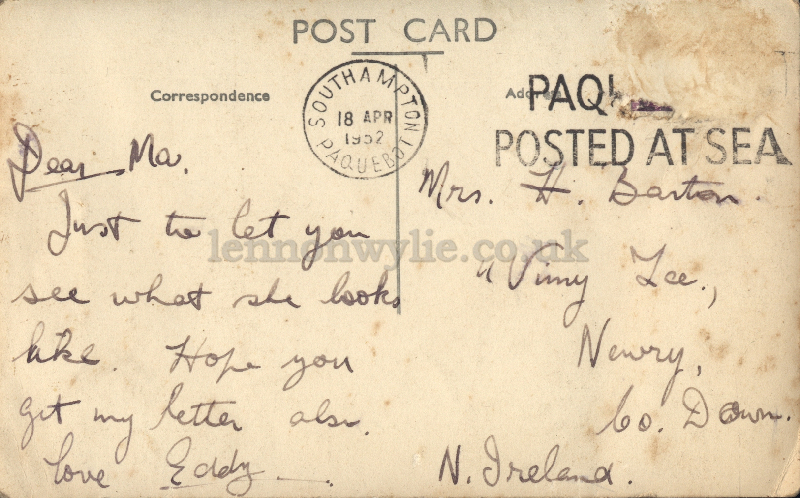 POST CARD
Correspondence
Address
SOUTHAMPTON
18 APR
1952
PAQUEBOT
PAQU
POSTED AT SEA
Dear Ma.
Just to let you
see what she looks
like. Hope you
get my letter also.
love Eddy
Mrs. H. Barton.
"Vimy Lee.,
Newry,
Co. Down.
N. Ireland.
lennonwylie.co.uk